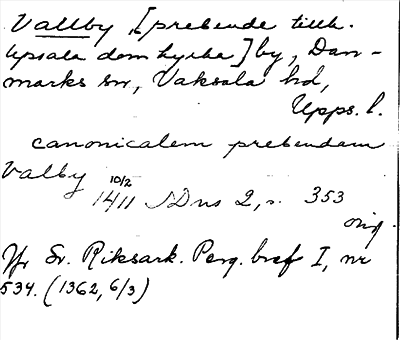 Vallby [prebende tillh.
Upsala domkyrka] by, Dan-
marks sn, Vaksala hd,
Upps. l.
canonicalem prebendam
Valby
10/2
1411 SDns 2, s. 353
orig.
Jfr Sv. Riksark. Perg. bref I, nr
534. (1362, 6/3)